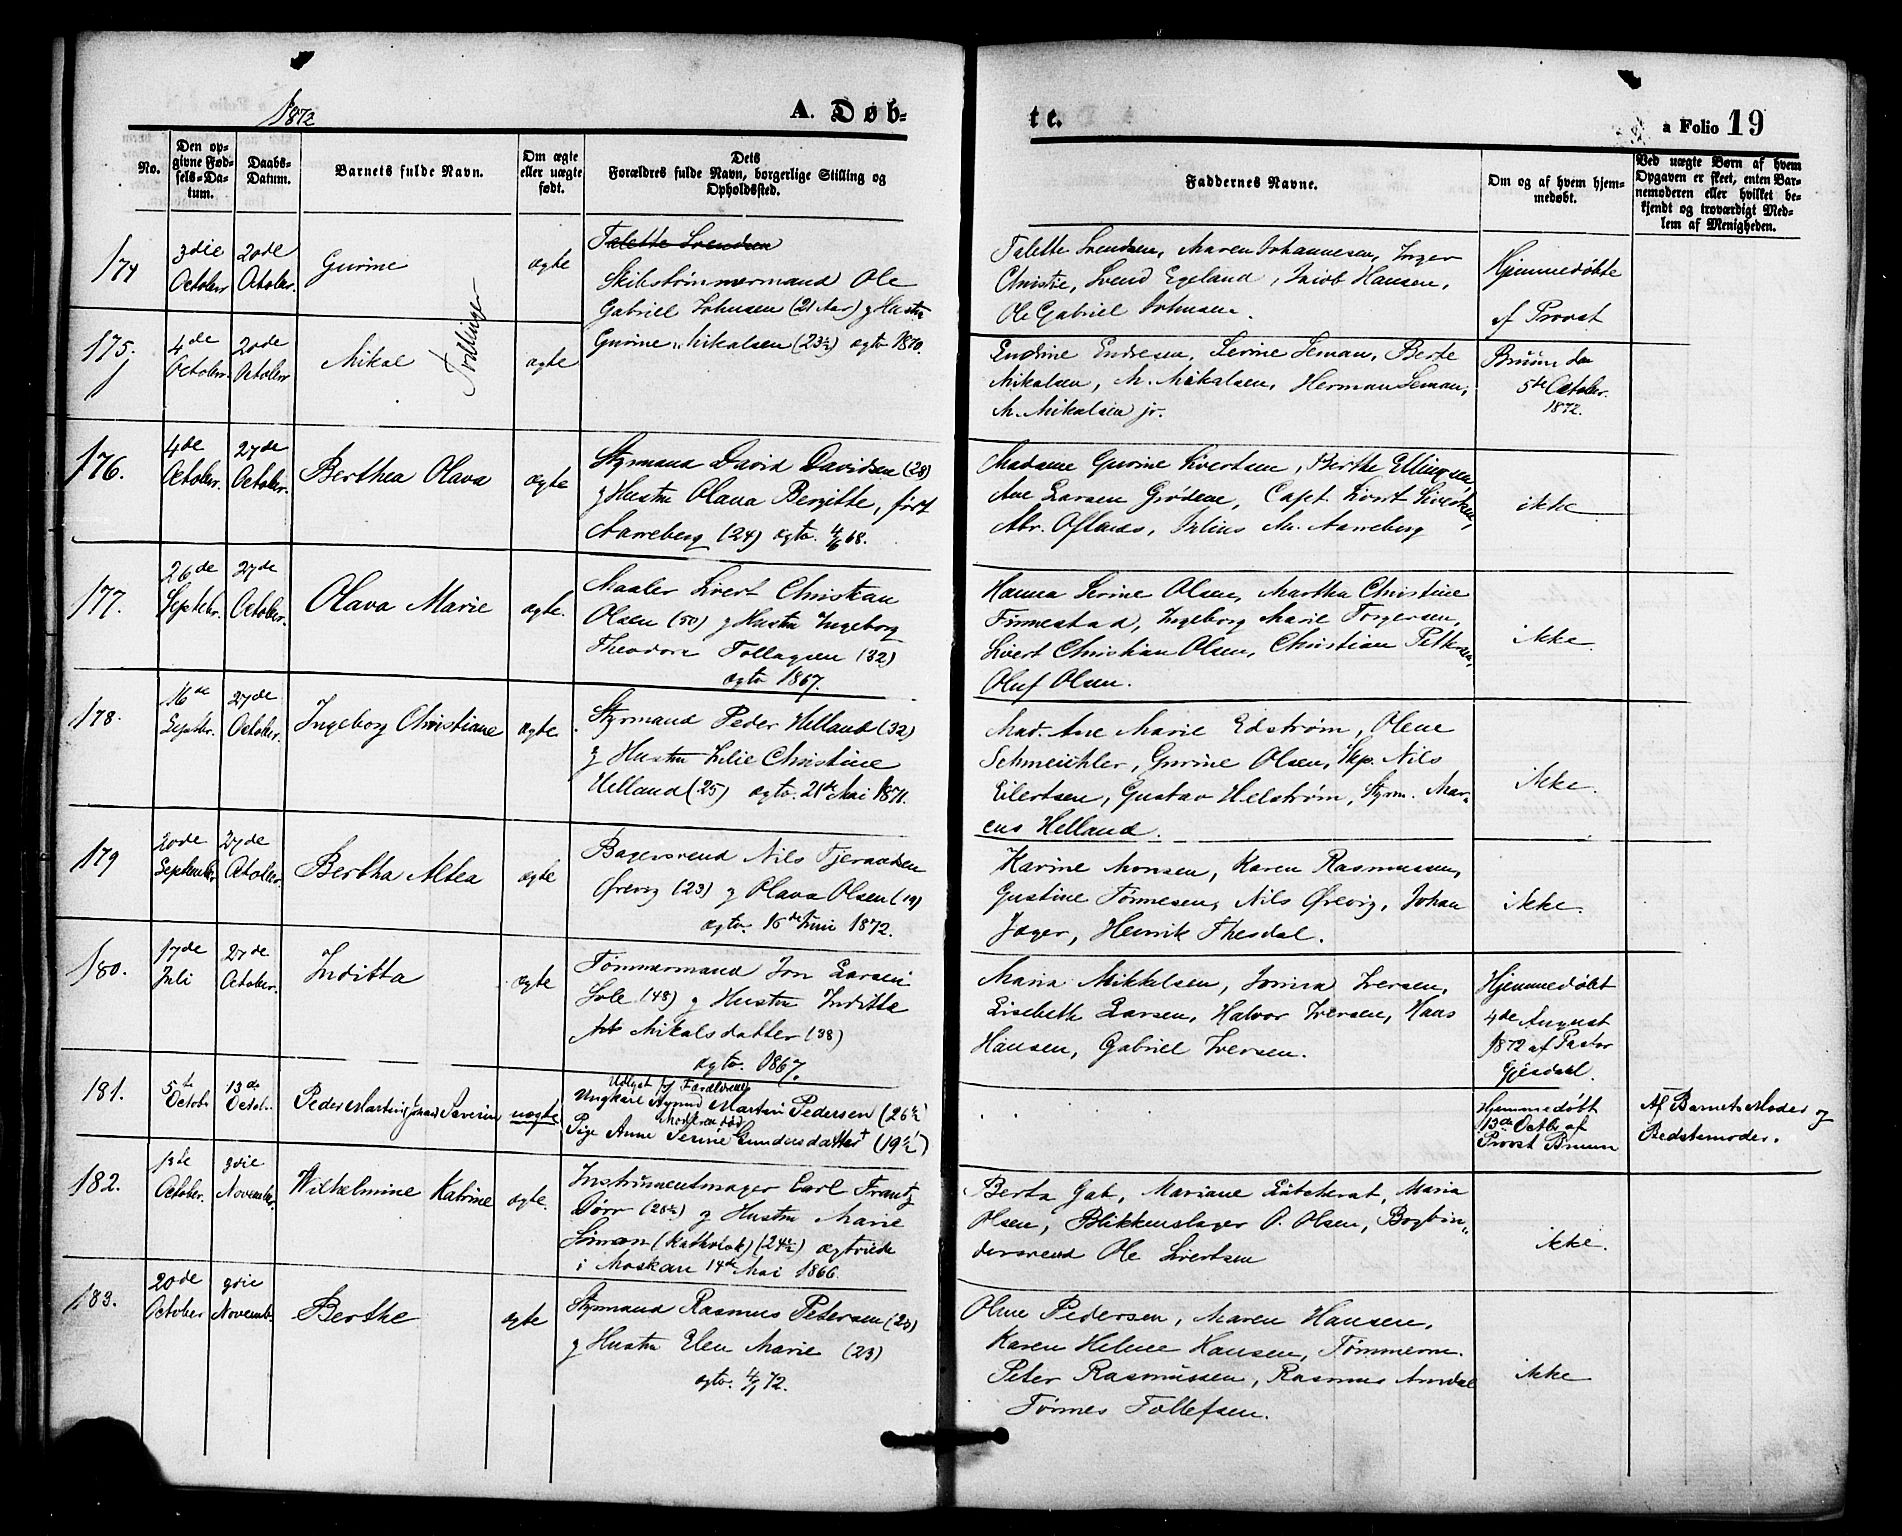 1872
A. Døb-
te.
a Folio 19
No.
Den op-
givne Fød-
sels-Da-
tum.
Daabs-
Datum.
Barnets fulde Navn.
Om ægte
eller uægte
født.
Dets
Forældres fulde Navn, borgerlige Stilling og
Opholdssted.
Faddernes Navne.
Om og af hvem hjem-
medøbt.
Ved uægte Børn af hvem
Opgaven er skeet, enten Bar-
nemoderen eller hvilket be-
kjendt og troværdigt Med-
lem af Menigheden.
174
3die
October
20de
October.
Gurine
Tvillinger
ægte
Talette Svendsen
Skibstømmermand Ole
Gabriel Johnsen (21 Aar) g Hustru
Gurine Mikalsen (23½) ægtv. 1870.
Talette Svendsen, Maren Johannesen, Inger
Christie, Svend Egeland, Jacob Hansen,
Ole Gabriel Johnsen.
Hjemmedøbte
af Provst
175.
4de
October.
20de
October
Mikal
ægte
Endrine Endresen, Serine Seman, Berte
Mikalsen, M. Mikalsen, Herman Seman,
M. Mikalsen jr.
Bruun den
5te October.
1872.
176.
4de
October.
27de
October.
Berthea Olava
ægte
Styrmand David Davidsen (28)
g Hustru Olava Bergitte, født
Aarreberg (24) ægtv. 4/6 68.
Madame Gurine Sivertsen, Berthe Ellingsen,
Ane Larsen Grødene, Capt. Sivert Sivertsen,
Abr. Oftnæs, Julius M. Aarreberg
ikke
177.
26de
Septebr.
27de
October.
Olava Marie
ægte.
Maaler Sivert Christian
Olsen (50) g Hustru Ingeborg
Theodora Tollagsen (32)
ægtv 1867.
Hanna Serine Olsen, Martha Christine
Finnestad, Ingeborg Marie Torgersen,
Sivert Christian Olsen, Christian Pettersen,
Oluf Olsen.
ikke.
178.
16de
Septbr.
27de
October.
Ingeborg Christiane
ægte.
Styrmand Peder Helland (32)
g Hustru Lilie Christine
Helland (25) ægtv. 21de Mai 1871.
Mad. Ane Marie Edstrøm, Olene
Schmeichler, Gurine Olsen, Skp. Nils
Eilertsen, Gustav Helstrøm, Styrm. Mar-
cus Helland.
ikke.
179
20de
September
27de
October.
Bertha Altea
ægte
Bagersvend Nils Tjerandsen
Ørevig (23) g Olava Olsen (19)
ægtv. 16de Juni 1872.
Karine Monsen, Karen Rasmussen,
Gustine Tønnesen, Nils Ørevig, Johan
Jæger, Henrik Thesdal.
ikke.
180.
17de
Juli
27de
October.
Inditta
ægte
Tømmermand Jon Larsen
Sole (48) g Hustru Inditta
Mikalsdatter (38)
ægtv. 1867.
Maria Mikkelsen, Jonina Iversen,
Lisebeth Larsen, Halvor Iversen, Hans
Hansen, Gabriel Iversen.
Hjemmedøbt
4de August
1872 af Pastor
Gjesdahl.
181.
5te
Octobr
13de
Octobr.
Peder Martin Johan Severin
uægte
Udlagt f Forældrene
Ungkarl Agmund Martin Pedersen (26½)
Moderen død
Pige Anne Serine Gundersdatter † (19½)
Hjemmedøbt
13de Octbr af
Provst Bruun
Af Barnets Moder og
Bedstemoder.
182.
13te
October.
3die
November.
Wilhelmine Katrine
ægte.
Instrumentmager Carl Frantz
Dörr (28½) g Hustru Marie
Siman (katholsk) (24½) ægtviede
i Moskau 14de Mai 1866.
Berta Gab, Mariane Lütcherat, Maria
Olsen, Blikkenslager O. Olsen, Bogbin-
dersvend Ole Sivertsen
ikke.
183.
20de
October
3die
Novemb.
Berthe
ægte
Styrmand Rasmus Petersen (23)
g Hustru Elen Marie (23)
ægtv. 4/4 72.
Oline Pedersen, Maren Hansen,
Karen Helene Hansen, Tømmerm.
Peter Rasmussen, Rasmus Amdal
Tønnes Tollefsen.
ikke